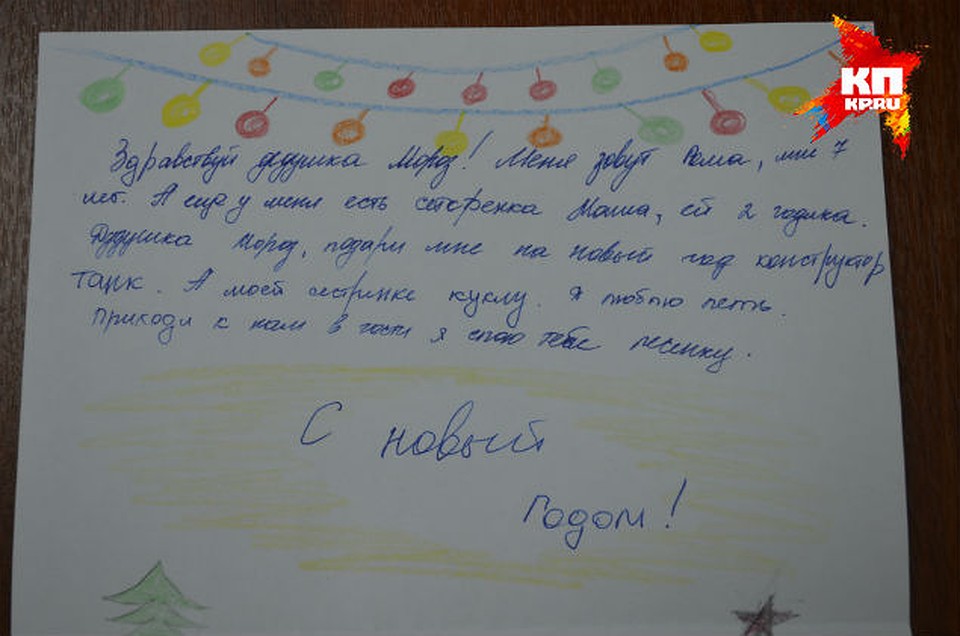 КП
KP.RU
Здравствуй дедушка Мороз! Меня зовут Рома, мне 7
лет. А ещё у меня есть сестренка Маша, ей 2 годика.
Дедушка Мороз, подари мне на новый год конструктор
танк. А моей сестринке куклу. Я люблю петь.
Приходи к нам в гости я спою тебе песенку.
С новый
годом!